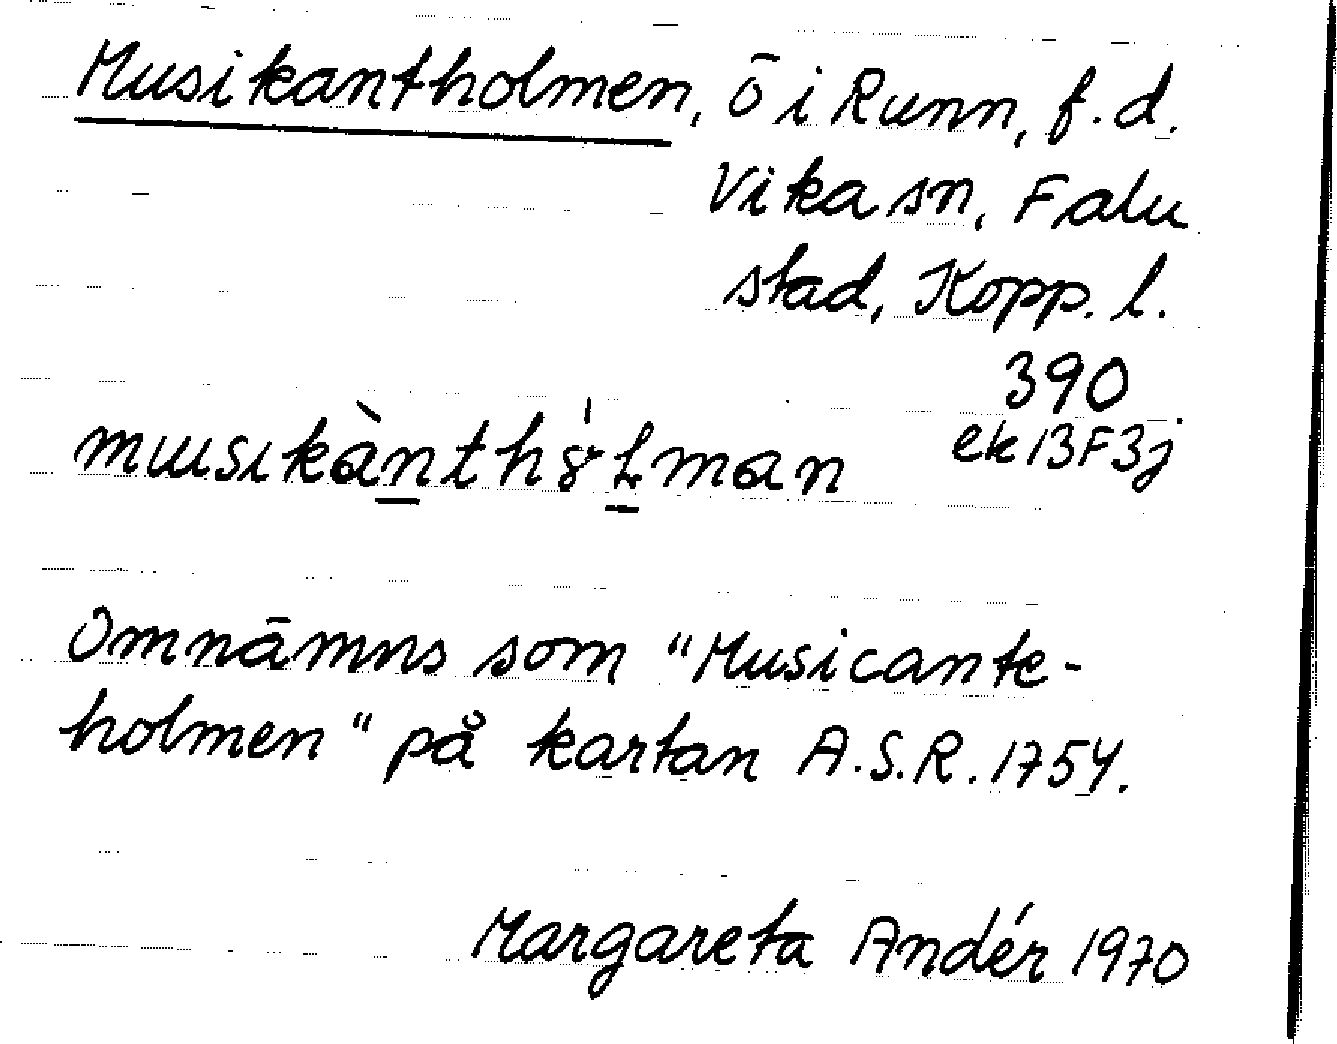 Musikantholmen, ö i Runn, f.d.
Vika sn, Falu
stad, Kopp. l.
390
ek 13F3j
mɯsıkàntho̍Lman
Omnämns som "Musicante-
holmen" på kartan A.S.R. 1754.
Margareta Andér 1970